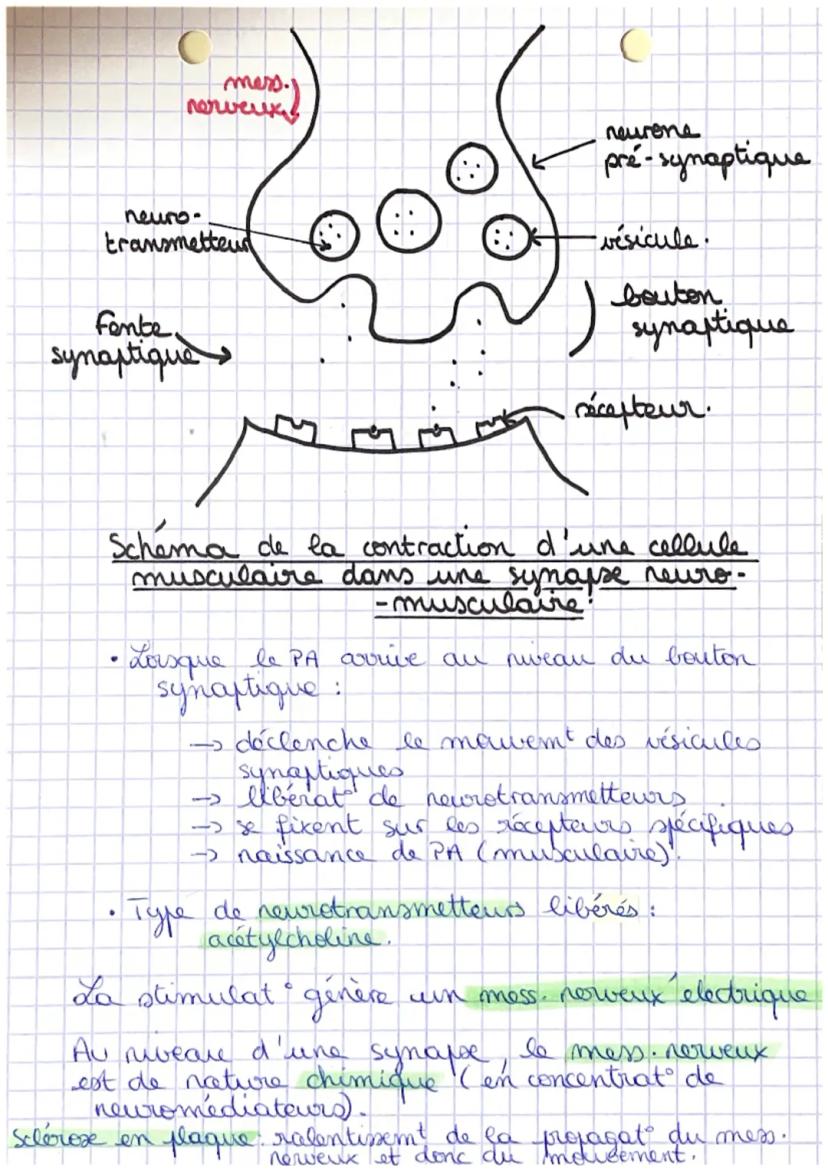 mess.
nerveux
neurone
pré-synaptique
neuro-
transmetteur
vésicule.
bouton
synaptique
fente
synaptique
récepteur.
Schéma de la contraction d'une cellule
musculaire dans une synapse neuro-
-musculaire:
• Lorsque le PA arrive au niveau du bouton
synaptique :
→ déclenche le mouvemt des vésicules
synaptiques
→ libérat° de neurotransmetteurs
→ se fixent sur les récepteurs spécifiques
→ naissance de PA (musculaire).
• Type de neurotransmetteurs libérés :
acétylcholine.
La stimulat° génère un mess. nerveux électrique
Au niveau d'une synapse, le mess. nerveux
est de nature chimique (en concentrat° de
neuromédiateurs).
Sclérose en plaque: ralentissemt de la propagat° du mess.
nerveux et donc du mouvement.